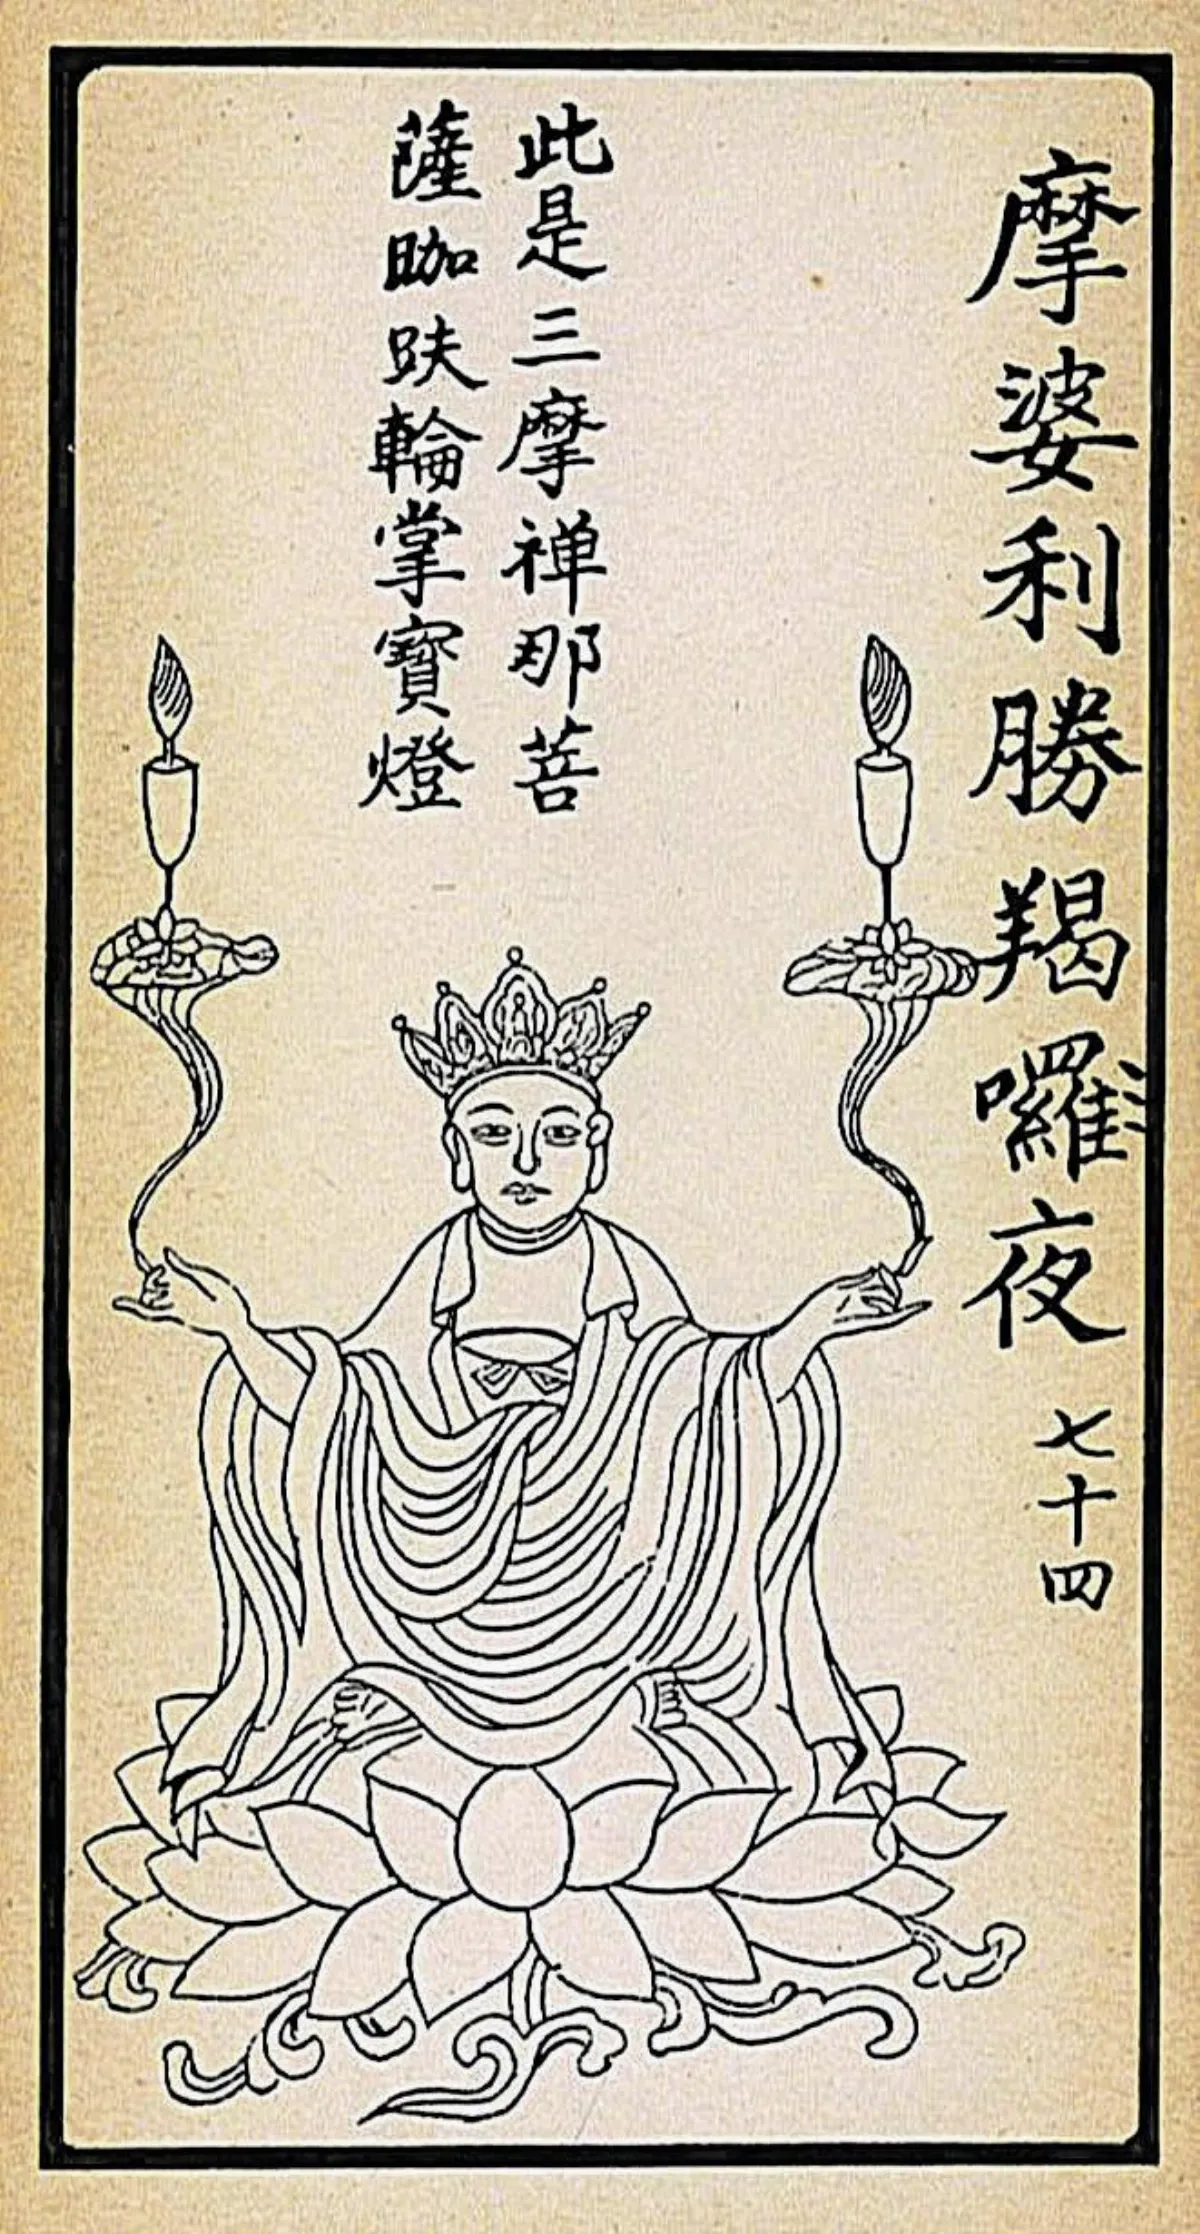 摩婆利勝羯囉夜 七十四
此是三摩禅那菩
薩跏趺輪掌寶燈